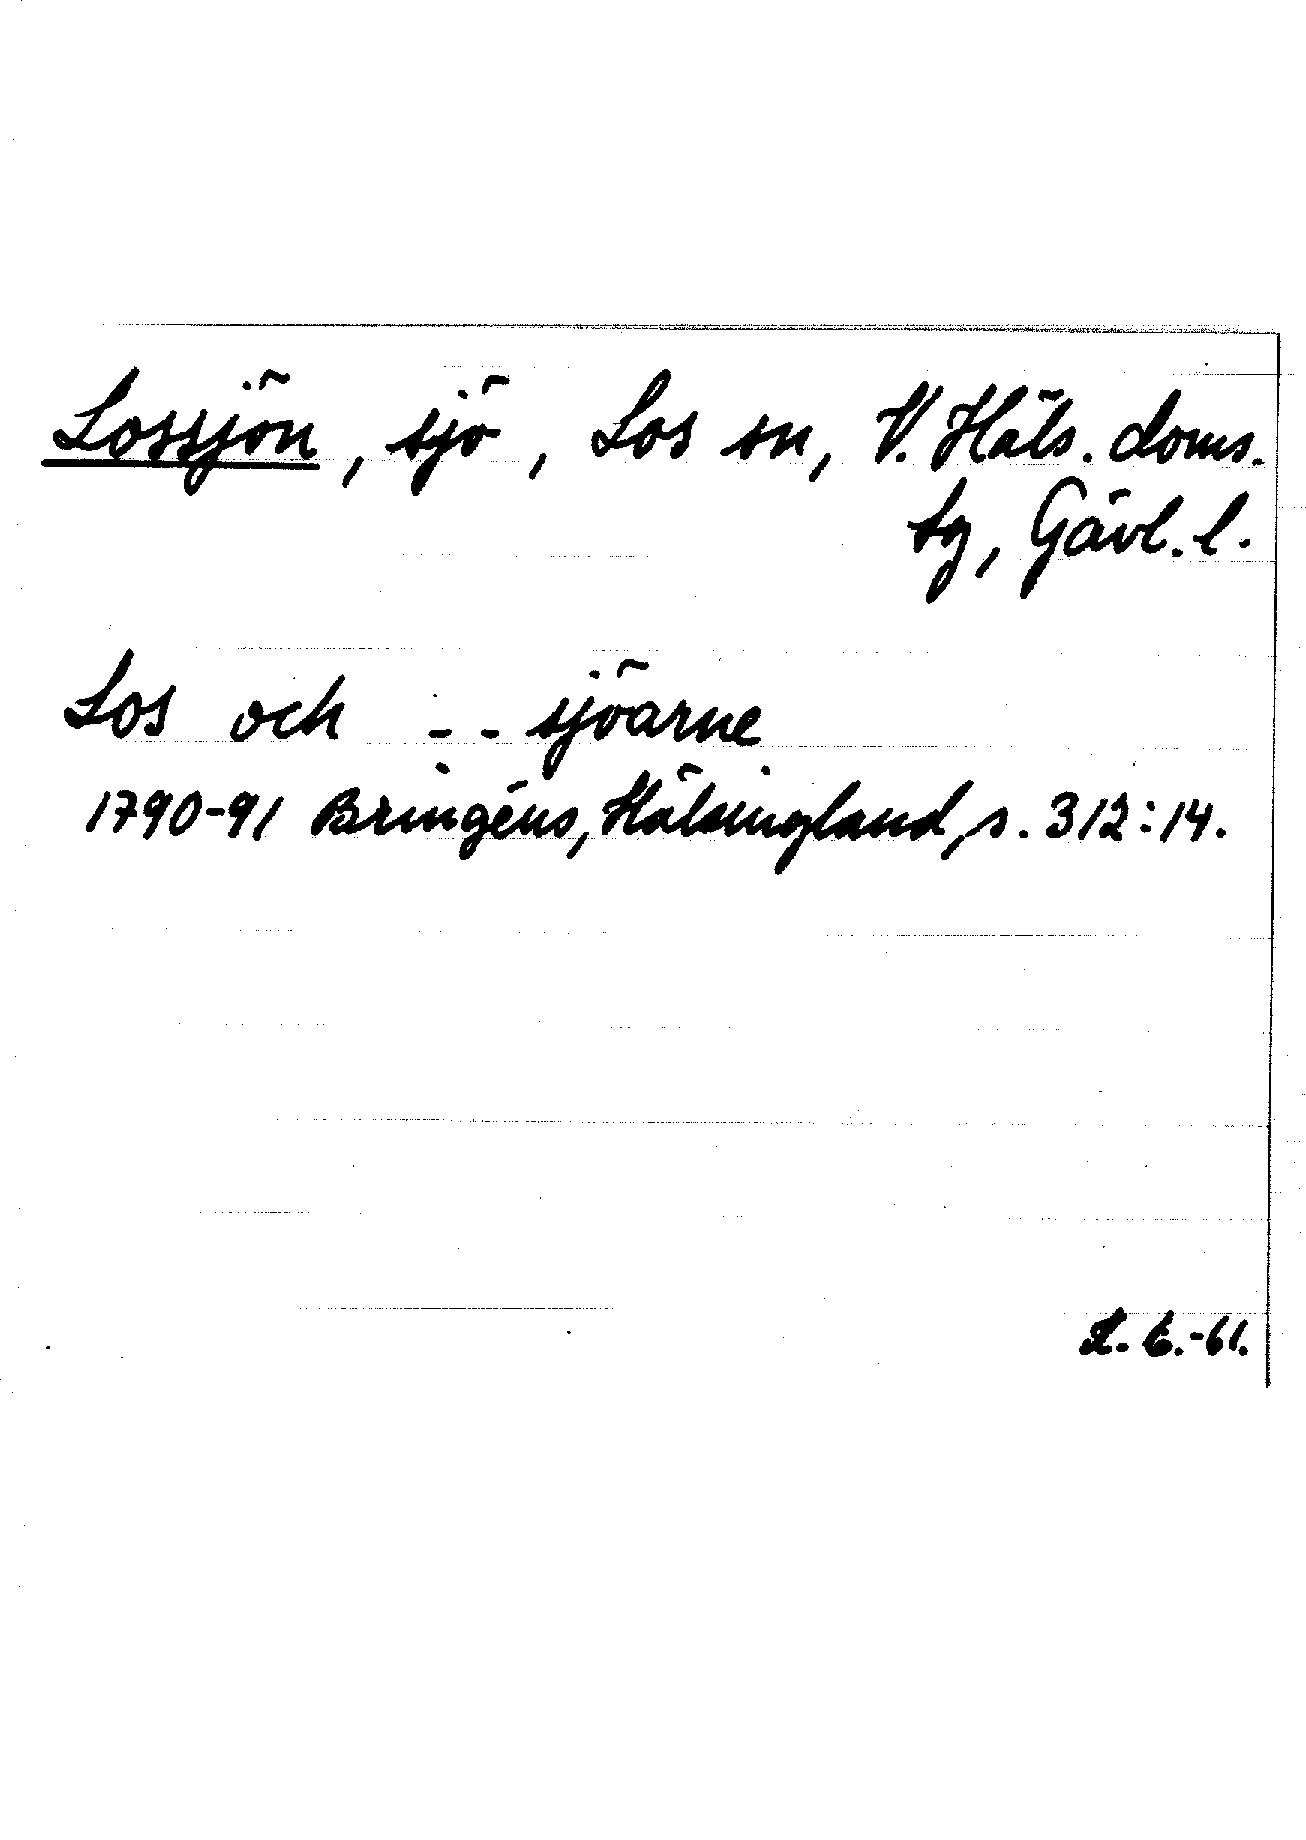 Lossjön, sjö, Los sn, V. Häls. doms.
sg, Gävl. l.
Los och - - sjöarne
1790-91 Bringéus, Hälsingland, s. 312:14.
L. E. -61.